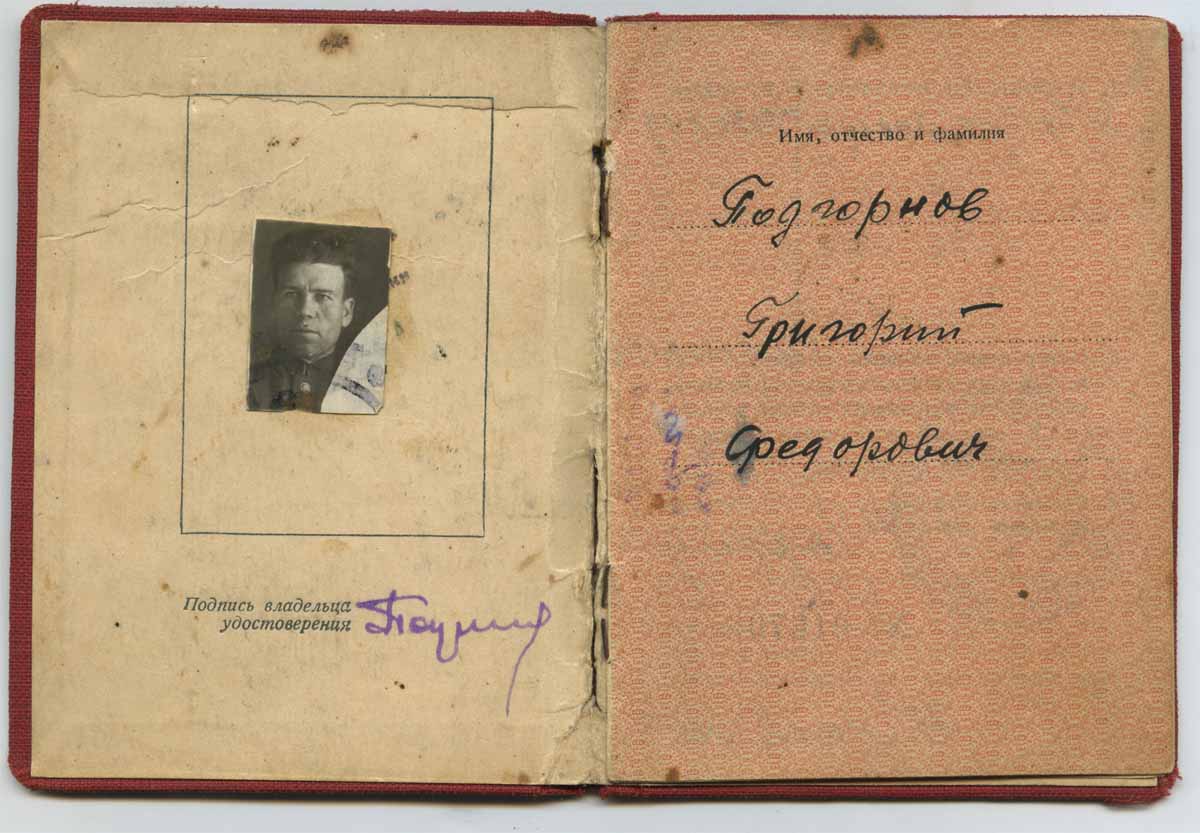 Подпись владельца
удостоверения
Имя, отчество и фамилия
Подгорнов
Григорий
Федорович